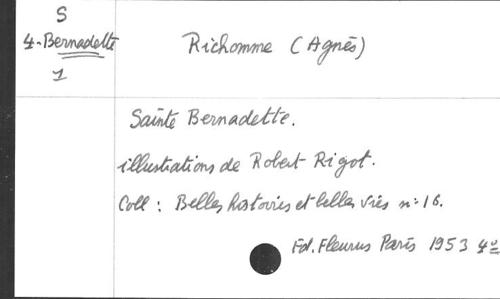 S
4-Bernadette
1
Richomme (Agnès)
Sainte Bernadette.
illustrations de Robert Rigot.
Coll : Belles histoires et belles vies n: 16.
Ed. Fleurus Paris 1953 4º